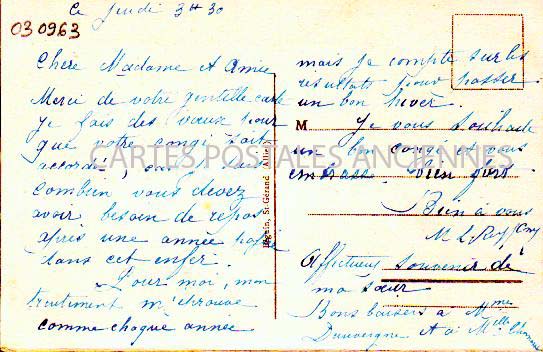 Ce Jeudi 3H 30
030963
Chère Madame et Amie
Merci de votre gentille carte
Je fais des vœux pour
que votre congé soit
accordé, car je sais
combien vous devez
avoir besoin de repos
après une année passée
dans cet enfer.
Pour moi, mon
traitement m'éprouve
comme chaque année
mais je compte sur les
résultats pour passer
un bon hiver.
M Je vous souhaite
un bon congé et vous
embrasse bien fort
Bien à vous
M. L.
Affectueux souvenir de
ma sœur
Bons baisers à Mme
et à Melle
CARTES POSTALES ANCIENNES
St Gérand (Allier)